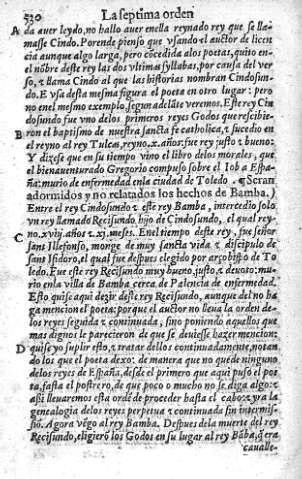 530 La septima orden
A da auer leydo, no hallo auer enella reynado rey que se lla-
masse Cindo. Porende pienso que vsando el auctor de licen
cia aunque algo larga, pero cõcedida alos poetas, quito en-
el nõbre deste rey las dos vltimas syllabas, por causa del ver
so, ⁊ llama Cindo al que las historias nombran Cindosun-
do. E vsa desta mesma figura el poeta en otro lugar: pero
no enel mesmo exemplo, segun adelãte veremos. Este rey Cin
dosundo fue vno delos primeros reyes Godos que rescibie-
B ron el baptismo de nuestra sancta fe catholica, ⁊ sucedio en
el reyno al rey Tulcas, reyno .x. años: fue rey justo ⁊ bueno:
Y dizese que en su tiempo vino el libro delos morales, que
el bienauenturado Gregorio compuso sobre el Iob a Espa-
ña: murio de enfermedad enla ciudad de Toledo. ¶ Seran
adormidos y no relatados los hechos de Bamba.)
Entre el rey Cindosundo ⁊ este rey Bamba, intercedio solo
vn rey llamado Recisundo, hijo de Cindosundo, el qual rey-
no .xvij. años ⁊ .xj. meses. En el tiempo deste rey, fue señor
C sant Illefonso, monge de muy sancta vida ⁊ discipulo de
sant Isidoro, el qual fue despues elegido por arçobispo de To
ledo. Fue este rey Recisundo muy bueno, justo, ⁊ deuoto: mu-
rio enla villa de Bamba cerca de Palencia de enfermedad.
Esto quise aqui dezir deste rey Recisundo, aunque del no ha
ga mencion el poeta: porque el auctor no lleua la orden de-
los reyes seguida ⁊ continuada, sino poniendo aquellos que
mas dignos le parecieron de que se deuiesse hazer mencion:
D quise yo suplir esto, ⁊ tratar dellos continuadamente, notan
do los que el poeta dexo: de manera que no quede ninguno
delos reyes de España, desde el primero que aqui puso el poe
ta, fasta el postrero, de que poco o mucho no se diga algo: ⁊
assi lleuaremos esta ordẽ de proceder hasta el cabo: ⁊ yra la
genealogia delos reyes perpetua ⁊ continuada sin intermis-
siõ. Agora vẽgo al rey Bamba. Despues dela muerte del rey
Recisundo, eligierõ los Godos en su lugar al rey Bãba, q̃ era
caualle-